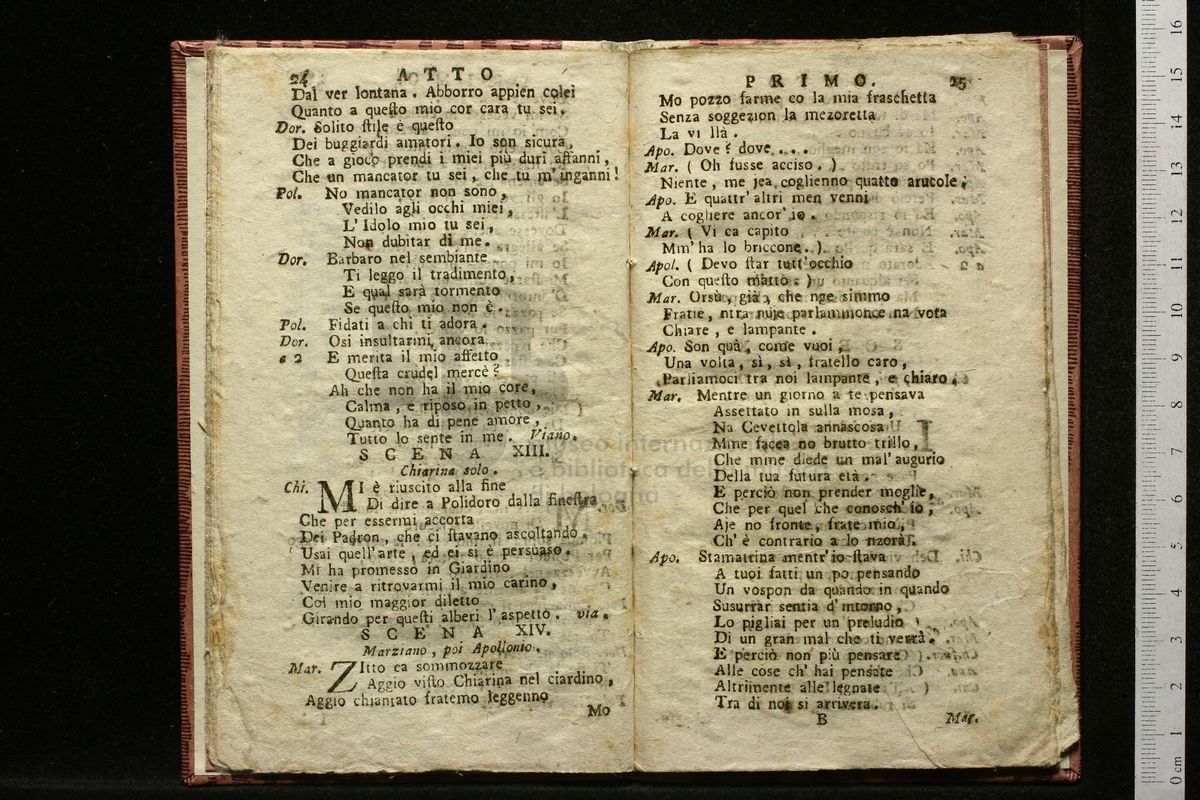 24 ATTO
Dal ver lontana. Abborro appien colei
Quanto a queſto mio cor cara tu sei.
Dor. Solito ſtile è queſto
Dei buggiardi amatori. Io son sicura,
Che a gioco prendi i miei più duri affanni,
Che un mancator tu sei, che tu m'inganni!
Pol. No mancator non sono,
Vedilo agli occhi miei,
L'Idolo mio tu sei,
Non dubitar di me.
Dor. Barbaro nel sembiante
Ti leggo il tradimento,
E qual sarà tormento
Se queſto mio non è.
Pol. Fidati a chi ti adora.
Dor. Osi insultarmi ancora
a 2 E merita il mio affetto
Queſta crudel mercè?
Ah che non ha il mio core,
Calma, e riposo in petto,
Quanto ha di pene amore,
Tutto lo sente in me. Viano.
SCENA XIII.
Chiarina solo.
Chi. MI è riuscito alla fine
Di dire a Polidoro dalla fineſtra
Che per essermi accorta
Dei Padron, che ci ſtavano ascoltando,
Usai quell'arte, ed ei si è persuaso.
Mi ha promesso in Giardino
Venire a ritrovarmi il mio carino,
Col mio maggior diletto
Girando per queſti alberi l'aspetto. via.
SCENA XIV.
Marziano, poi Apollonio.
Mar. ZItto ca sommozzare
Aggio viſto Chiarina nel ciardino,
Aggio chiantato fratemo leggenno
Mo
PRIMO. 25
Mo pozzo farme co la mia fraschetta
Senza soggezion la mezoretta
La vi llà.
Apo. Dove? dove....
Mar. ( Oh fusse acciso. )
Niente, me jea coglienno quatto arucole;
Apo. E quattr'altri men venni
A cogliere ancor'io.
Mar. ( Vi ca capito
Mm'ha lo briccone. )
Apol. ( Devo ſtar tutt'occhio
Con queſto matto. )
Mar. Orsù, già, che nge simmo
Fratie, ntra nuje parlammonce na vota
Chiare, e lampante.
Apo. Son quà, come vuoi,
Una volta, sì, sì, fratello caro,
Parliamoci tra noi lampante, e chiaro.
Mar. Mentre un giorno a te pensava
Assettato in sulla mosa,
Na Cevettola annascosa
Mme facea no brutto trillo,
Che mme diede un mal'augurio
Della tua futura età.
E perciò non prender moglie,
Che per quel che conosch'io,
Aje no fronte, frate mio,
Ch'è contrario a lo nzorà.
Apo. Stamattina mentr'io ſtava
A tuoi fatti un po pensando
Un vospon da quando in quando
Susurrar sentia d'intorno,
Lo pigliai per un preludio
Di un gran mal che ti verrà.
E perciò non più pensare
Alle cose ch'hai pensate
Altrimente alle legnate
Tra di noi si arriverà.
B Mar.